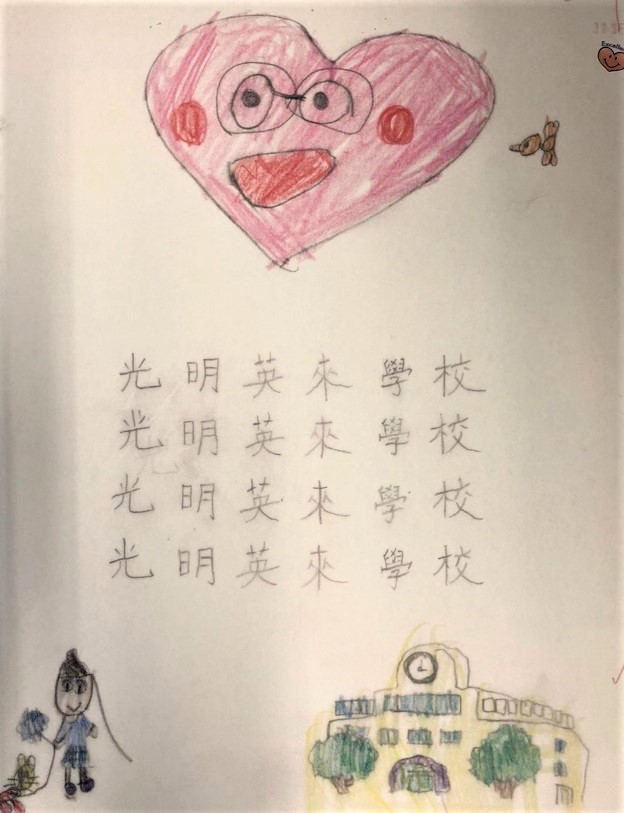 光明英來學校
光明英來學校
光明英來學校
光明英來學校